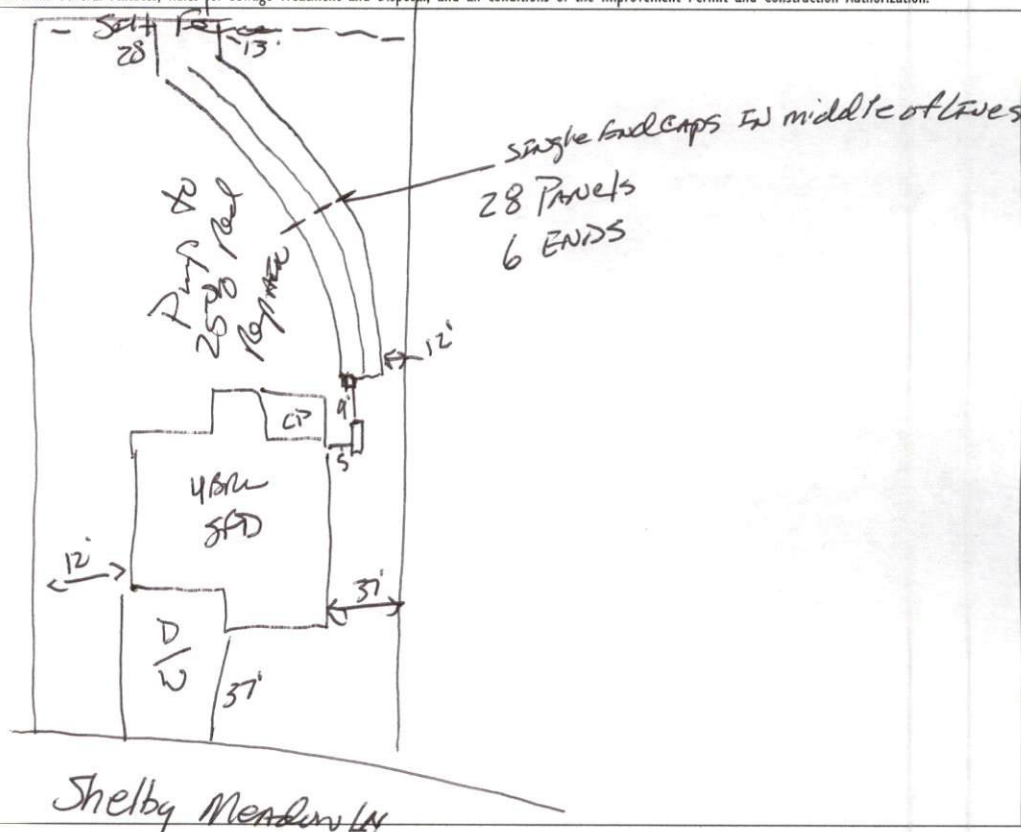 Rules for Sewage Treatment and Disposal, and all conditions of the Improvement Permit and Construction Authorization.
28
13'
Single Endcaps IN middle of Lines
28 Panels
6 ENDS
Pump to
25% Red
Repair
12'
CP
9'
5'
4BRM
SFD
12'
37'
D/W
37'
Shelby Meadow LN